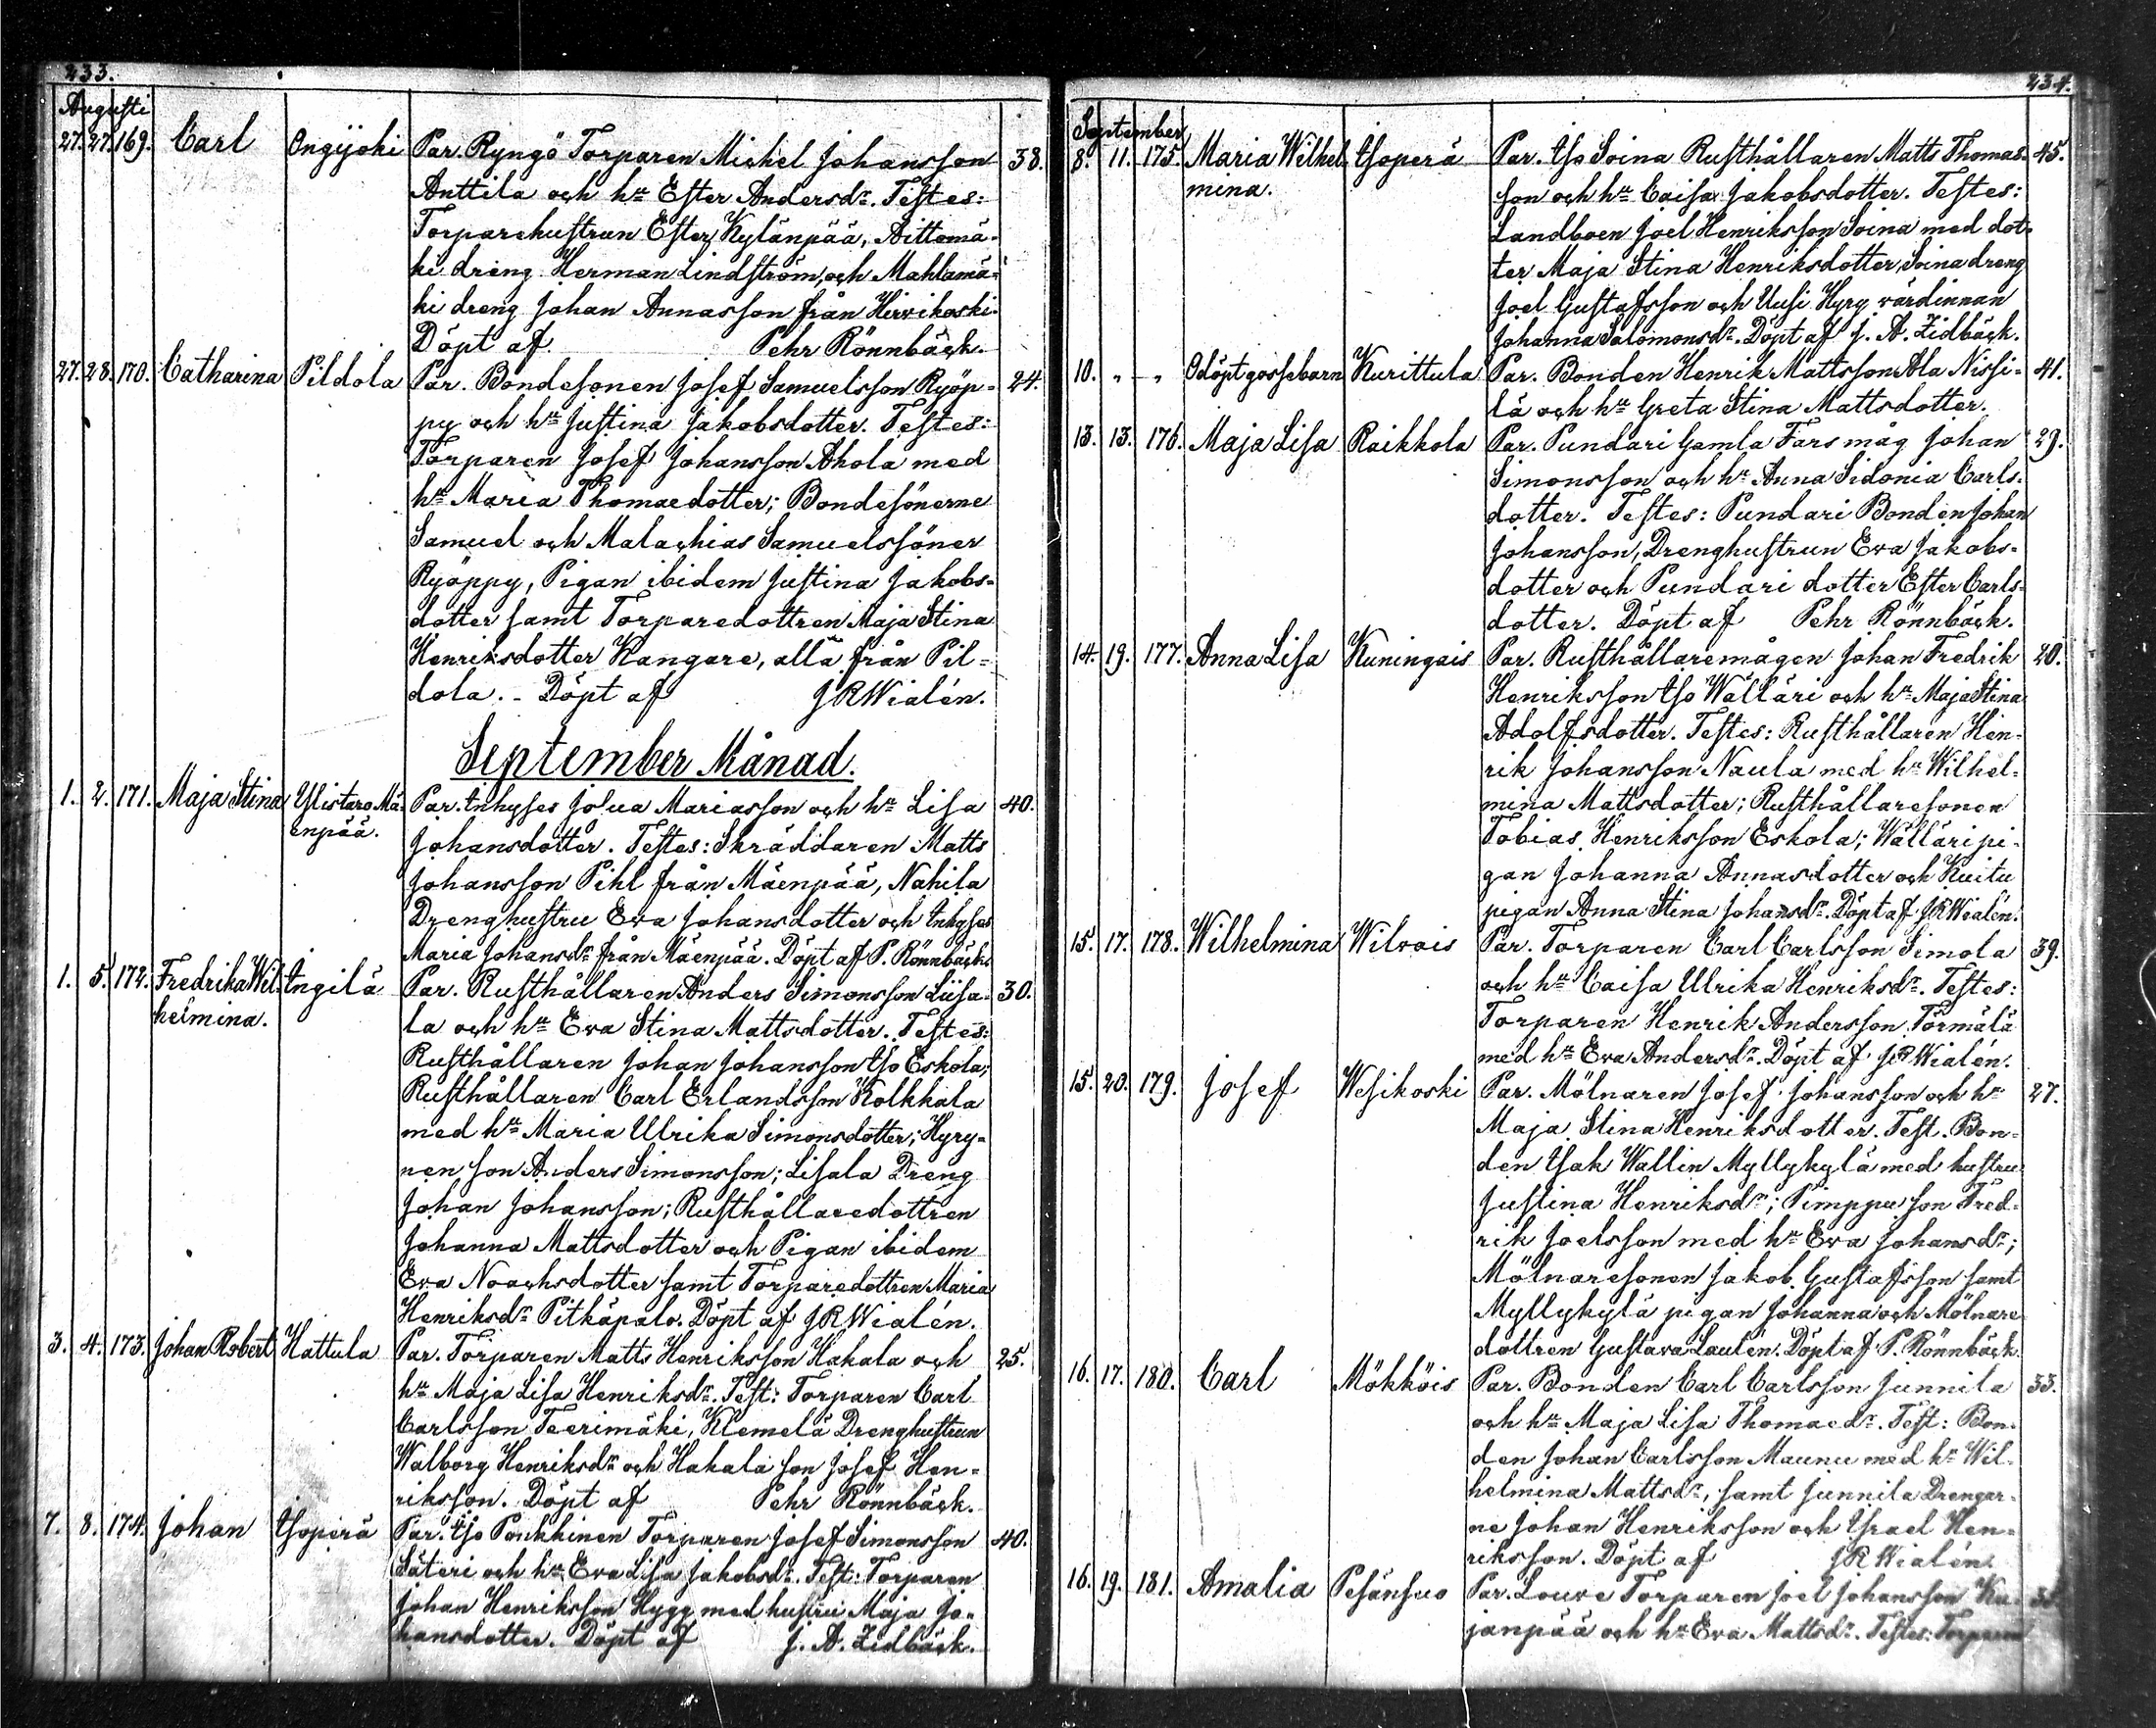 233.
Augusti
27. 27. 169. Carl Ongijoki Par. Ryngö Torparen Michel Johansson 38.
Anttila och hr Ester Andersdr. Testes:
Torparehustrun Ester Kylänpää, Aittomä-
ki dreng Herman Lindström, och Mahlamä-
ki dreng Johan Annasson från Hirvikoski.
Döpt af Pehr Rönnbäck.
27. 28. 170. Catharina Pildola Par. Bondesonen Josef Samuelsson Ryöp- 24.
py och hr Justina Jakobsdotter. Testes:
Torparen Josef Johansson Ahola med
hr Maria Thomaedotter; Bondesönerne
Samuel och Malachias Samuelssöner
Ryöppy, Pigan ibidem Justina Jakobs-
dotter samt Torparedottren Maja Stina
Henriksdotter Kangare, alla från Pil-
dola. - Döpt af JRWialén.
September Månad.
1. 2. 171. Maja Stina Ylistaro Mä- Par. Inhyses Josua Mariasson och hr Lisa 40.
enpää. Johansdotter. Testes: Skräddaren Matts
Johansson Pihl från Mäenpää, Nahila
Drenghustru Eva Johansdotter och Inhyses
Maria Johansdr från Mäenpää. Döpt af P. Rönnbäck.
1. 5. 172. Fredrika Wil- Ingilä Par. Rusthållaren Anders Simonsson Liisa- 30.
helmina. la och hr Eva Stina Mattsdotter. Testes:
Rusthållaren Johan Johansson Iso Eskola;
Rusthållaren Carl Erlandsson Kolkkala
med hr Maria Ulrika Simonsdotter; Hyry-
nen son Anders Simonsson; Lisala Dreng
Johan Johansson; Rusthållaredottren
Johanna Mattsdotter och Pigan ibidem
Eva Noachsdotter samt Torparedottren Maria
Henriksdr Pitkäpalo. Döpt af JRWialén.
3. 4. 173. Johan Robert Hattula Par. Torparen Matts Henriksson Hakala och 25.
hr Maja Lisa Henriksdr. Test: Torparen Carl
Carlsson Teerimäki, Klemelä Drenghustrun
Walborg Henriksdr och Hakala son Josef Hen-
riksson. Döpt af Pehr Rönnbäck.
7. 8. 174. Johan Isoperä Par. Iso Ponkkinen Torparen Josef Simonsson 40.
Säteri och hr Eva Lisa Jakobsdr. Test: Torparen
Johan Henriksson Hygg med hustru Maja Jo-
hansdotter. Döpt af J. A. Zidbäck.
234.
September
8. 11. 175. Maria Wilhel- Isoperä Par. Iso Soina Rusthållaren Matts Thomas- 45.
mina. son och hr Caisa Jakobsdotter. Testes:
Landboen Joel Henriksson Soina med dot-
ter Maja Stina Henriksdotter, Soina dreng
Joel Gustafsson och Uusi Hyry värdinnan
Johanna Salomonsdr. Döpt af J. A. Zidbäck.
10. „ - „ Odöpt gossebarn Kurittula Par. Bonden Henrik Mattsson Ala Nissi- 41.
lä och hr Greta Stina Mattsdotter.
13. 13. 176. Maja Lisa Raikkola Par. Pundari Gamla Fars måg Johan 29.
Simonsson och hr Anna Sidonia Carls-
dotter. Testes: Pundari Bonden Johan
Johansson, Drenghustrun Eva Jakobs-
dotter och Pundari dotter Ester Carls-
dotter. Döpt af Pehr Rönnbäck.
14. 19. 177. Anna Lisa Kuningais Par. Rusthållaremågen Johan Fredrik 20.
Henriksson Iso Wällari och hr Maja Stina
Adolfsdotter. Testes: Rusthållaren Hen-
rik Johansson Naula med hr Wilhel-
mina Mattsdotter; Rusthållaresonen
Tobias Henriksson Eskola; Wällari pi-
gan Johanna Annasdotter och Kuitu
pigan Anna Stina Johansdr. Döpt af JRWialén.
15. 17. 178. Wilhelmina Wilvais Par. Torparen Carl Carlsson Simola 39.
och hr Caisa Ulrika Henriksdr. Testes:
Torparen Henrik Andersson Törmälä
med hr Eva Andersdr. Döpt af JRWialén.
15. 20. 179. Josef Wesikoski Par. Mölnaren Josef Johansson och hr 27.
Maja Stina Henriksdotter. Test. Bon-
den Isak Wallin Myllykylä med hustru
Justina Henriksdr; Pimppu son Fred-
rik Joelsson med hr Eva Johansdr;
Mölnaresonen Jakob Gustafsson samt
Myllykylä pigan Johanna och Mölnare
dottren Gustava Laulén. Döpt af P. Rönnbäck.
16. 17. 180. Carl Mökköis Par. Bonden Carl Carlsson Junnila 33.
och hr Maja Lisa Thomaedr. Test: Bon-
den Johan Carlsson Maunu med hr Wil-
helmina Mattsdr, samt Junnila Drengar-
ne Johan Henriksson och Israel Hen-
riksson. Döpt af JRWialén.
16. 19. 181. Amalia Pesänsuo Par. Louve Torparen Joel Johansson Ka-
janpää och hr Eva Mattsdr. Testes: Torparen